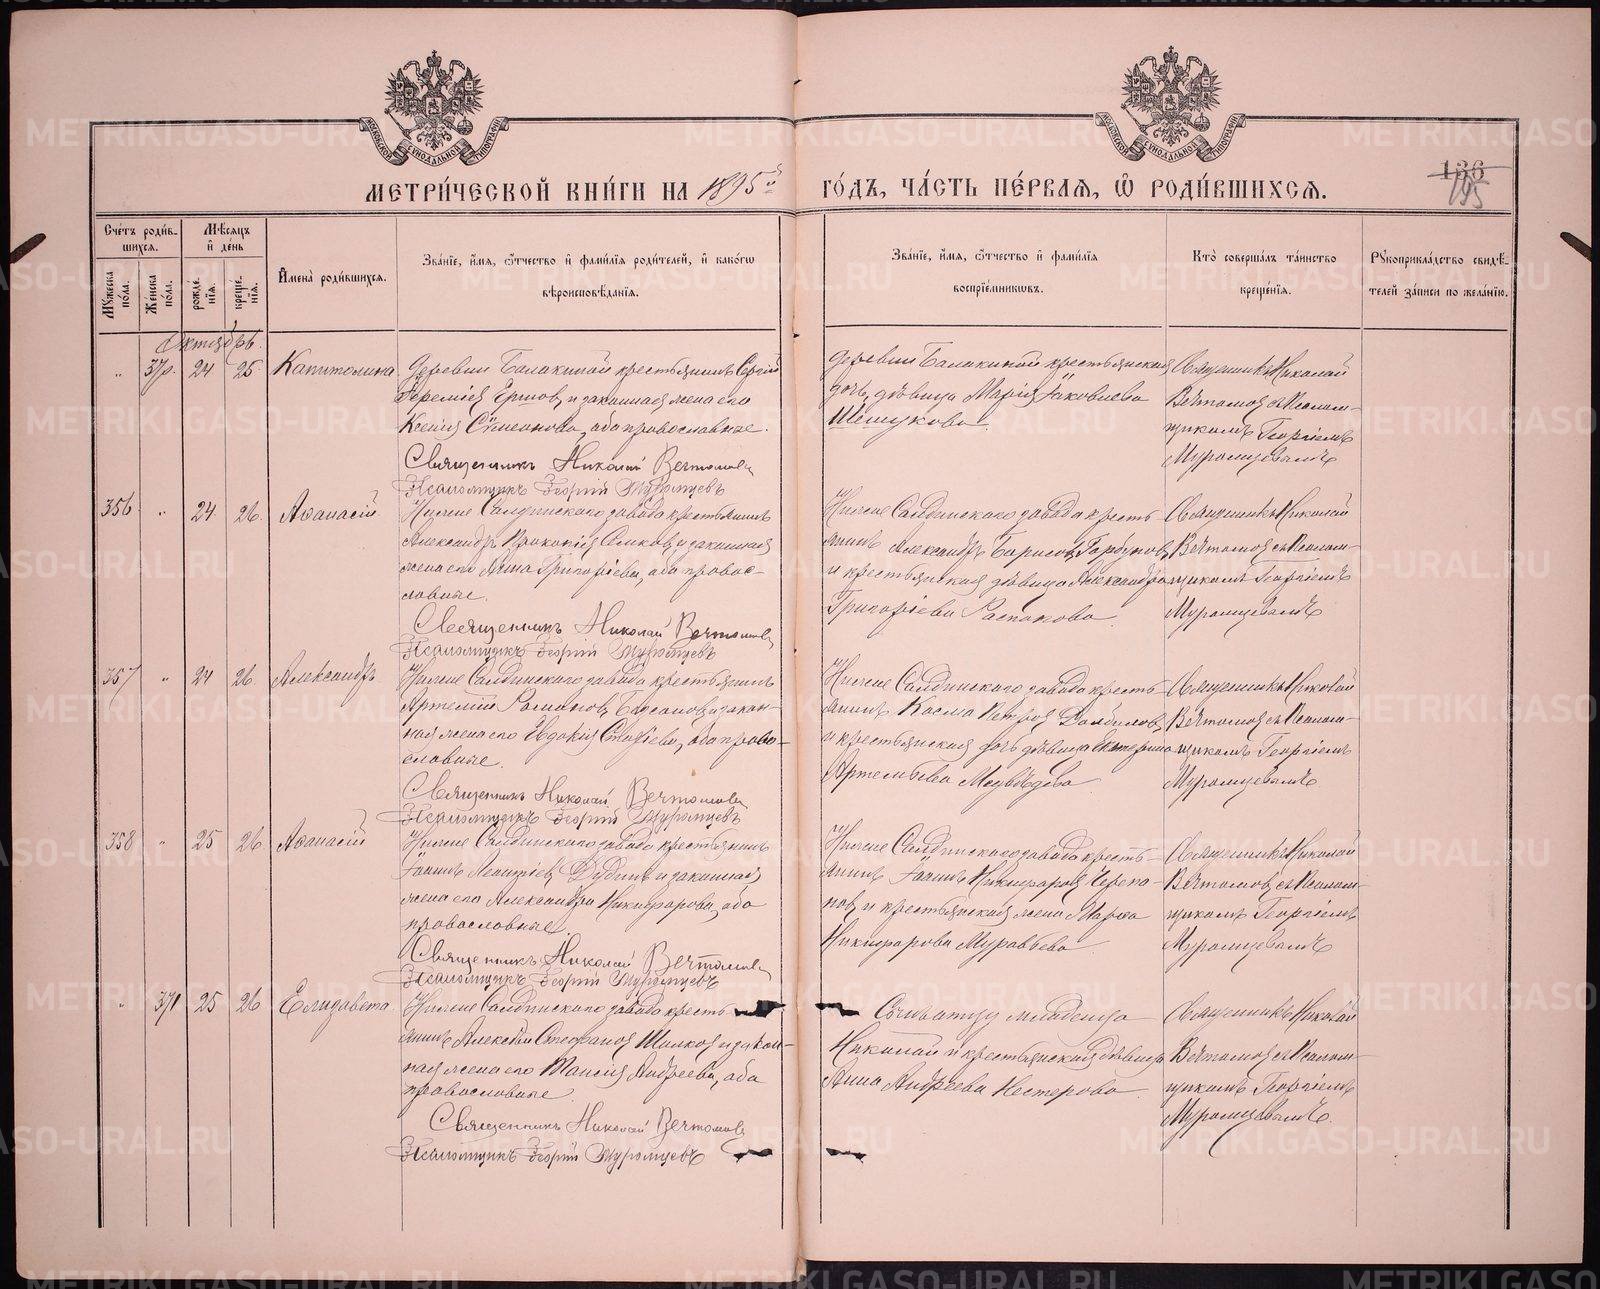 МОСКОВСКОЙ СѴНОДАЛЬНОЙ ТИПОГРАФІИ
МОСКОВСКОЙ СѴНОДАЛЬНОЙ ТИПОГРАФІИ
136
195
МЕТРИ́ЧЕСКОЙ КНИ́ГИ НА 1895й ГО́ДЪ, ЧА́СТЬ ПЕ́РВАЯ, Ѡ РОДИ́ВШИХСЯ.
Сче́тъ роди́в-
шихся.
Мѣ́сяцъ
и де́нь
Мꙋ́жеска
по́ла.
Же́нска
по́ла.
рожде́-
нїѧ.
креще́-
нїѧ.
И҆мена̀ роди́вшихсѧ.
Зва́нїе, и҆́мѧ, ѻ҆́тчество и҆ фами́лїѧ роди́телей, и҆ како́гѡ
вѣроисповѣ́данїѧ.
Зва́нїе, и҆́мѧ, ѻ҆́тчество и҆ фами́лїѧ
воспрїе́мникѡвъ.
Кто̀ соверша́лъ та́инство
креще́нїѧ.
Рꙋкоприкла́дство свидѣ́-
телей за́писи по жела́нїю.
Октябрь.
„ 370. 24 25 Капитолина
Деревни Балакиной крестьянинъ Сергій
Іереміевъ Ершовъ, и законная жена его
Ксенія Сѵмеонова, оба православные.
Священникъ Николай Вечтомовъ
Псаломщикъ Георгій Муромцевъ
Деревни Балакиной крестьянская
дочь, дѣвица Марія Іаковлева
Шешукова.
Священникъ Николай
Вечтомовъ съ Псалом-
щикомъ Георгіемъ
Муромцевымъ
356 „ 24 26. Аѳанасій
Нижне Салдинскаго завода крестьянинъ
Александръ Прокопіевъ и законная
жена его Анна Григоріева, оба правос-
лавные.
Священникъ Николай Вечтомовъ
Псаломщикъ Георгій Муромцевъ
Нижне Салдинскаго завода кресть-
янинъ Александръ Борисовъ Горбуновъ,
и крестьянская дѣвица Александра
Григоріева
Священникъ Николай
Вечтомовъ съ Псалом-
щикомъ Георгіемъ
Муромцевымъ
357 „ 24 26. Александръ
Нижне Салдинскаго завода крестьянинъ
Артемій Романовъ и закон-
ная жена его Евдокія, оба право-
славные.
Священникъ Николай Вечтомовъ
Псаломщикъ Георгій Муромцевъ
Нижне Салдинскаго завода кресть-
янинъ Косма Петровъ Долбиловъ,
и крестьянская дочь дѣвица Екатерина
Артемьева Медвѣдева
Священникъ Николай
Вечтомовъ съ Псалом-
щикомъ Георгіемъ
Муромцевымъ
358 „ 25 26 Аѳанасій
Нижне Салдинскаго завода крестьянинъ
Іоаннъ Леонтіевъ Дудинъ и законная
жена его Александра Никифорова, оба
православные.
Священникъ Николай Вечтомовъ
Псаломщикъ Георгій Муромцевъ
Нижне Салдинскаго завода кресть-
янинъ Іоаннъ Никифоровъ Черепа-
новъ и крестьянская жена Марѳа
Никифорова Муравьева
Священникъ Николай
Вечтомовъ съ Псалом-
щикомъ Георгіемъ
Муромцевымъ
„ 371 25 26 Елизавета
Нижне Салдинскаго завода кресть-
янинъ Алексѣй Стефановъ и закон-
ная жена его Таисія Андреева, оба
православные.
Священникъ Николай Вечтомовъ
Псаломщикъ Георгій Муромцевъ
младенца
Николай и крестьянская дѣвица
Анна Андреева Нестерова
Священникъ Николай
Вечтомовъ съ Псалом-
щикомъ Георгіемъ
Муромцевымъ.
METRIKI.GASO-URAL.RU